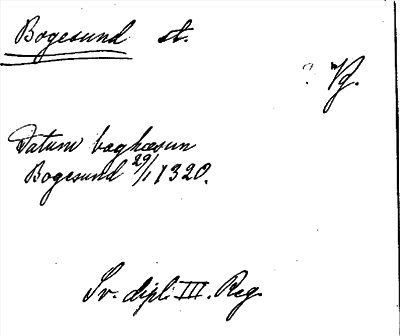 Bogesund st.
? Vg.
Datum boghæsun
Bogesund 29/1 1320.
Sv. dipl. III. Reg.